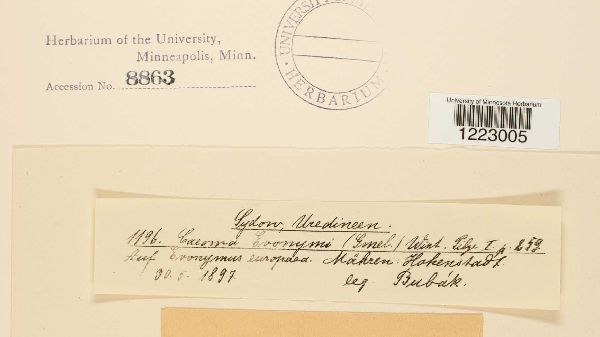 Herbarium of the University,
Minneapolis, Minn.
Accession No. 8863
HERBARIUM
University of Minnesota Herbarium
1223005
Sydow, Uredineen.
1196. Caeoma Evonymi (Gmel.) Wint. Pilze I, p. 259
Auf Evonymus europaea. Mähren: Hohenstadt
30.5.1897 leg. Bubák.